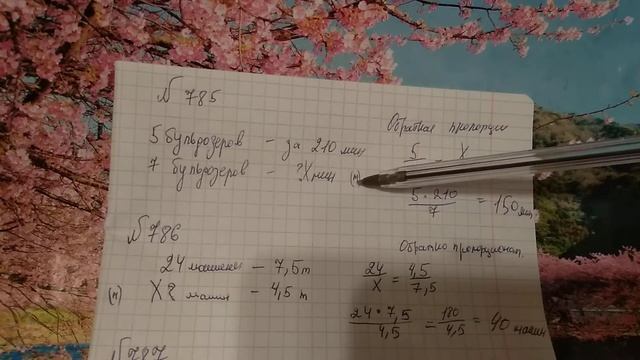 № 785
5 бульдозеров – за 210 мин
7 бульдозеров – ?X мин (м)
Обратная пропорция
5 = X
5 · 210 / 7 = 150 мин.
№ 786
24 машины – 7,5 т
(м) X? машин – 4,5 т
Обратно пропорционал.
24 / X = 4,5 / 7,5
24 · 7,5 / 4,5 = 180 / 4,5 = 40 машин
№ 787